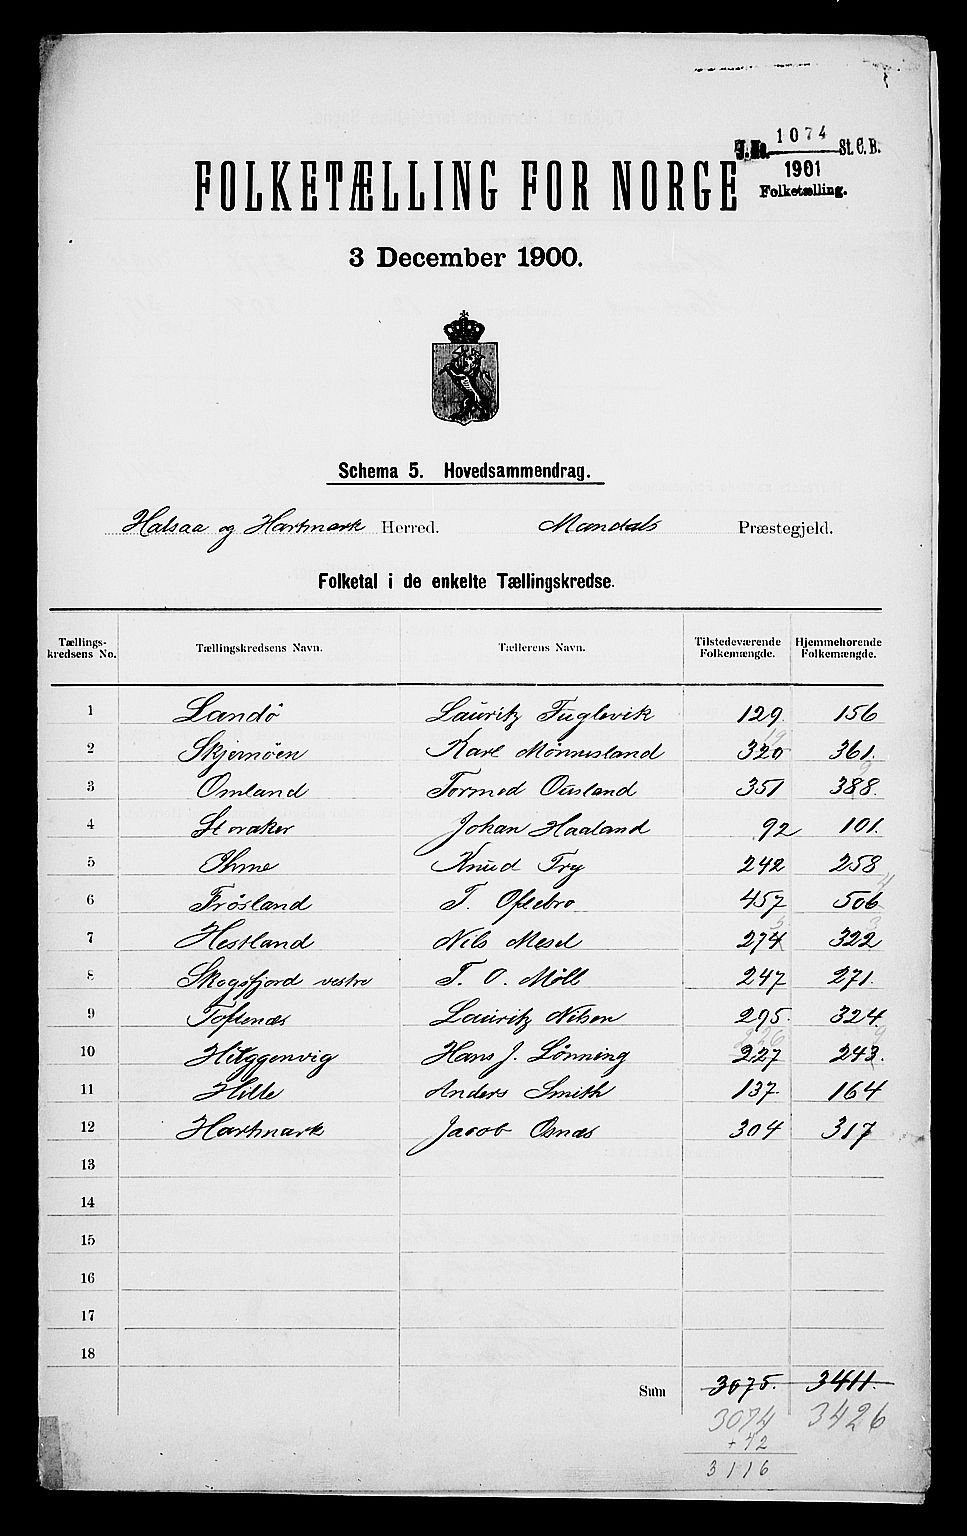 J.No. 1074 St.C.B.
1901
Folketælling.
FOLKETÆLLING FOR NORGE
3 December 1900.
Schema 5. Hovedsammendrag.
Halsaa og Hartmark Herred. Mandals Præstegjeld.
Folketal i de enkelte Tællingskredse.
Tællings-kredsens No. Tællingskredsens Navn. Tællerens Navn. Tilstedeværende Folkemængde. Hjemmehørende Folkemængde.
1 Landö Lauritz Fuglevik 129. 156
2 Skjernöen Karl Mönnesland 320 19 361.
3 Omland Tormod Ousland 351 388. 9
4 Storaker Johan Haaland 92 101.
5 Ihme Knud Try 242 258
6 Frösland T. Oftebro 457 506 4
7 Hestland Nils Mesel 274 5 322 3
8 Skogsfjord vestre T. O. Möll 247 271.
9 Toftenæs Lauritz Nilsen 295. 324
10 Hilggenvig Hans J. Lönning 227 226 243. 9
11 Hille Anders Smith 137. 164
12 Hartmark Jacob Osnæs 304 317
13
14
15
16
17
18
Sum 3075. 3411.
3074 3426
+42
3116